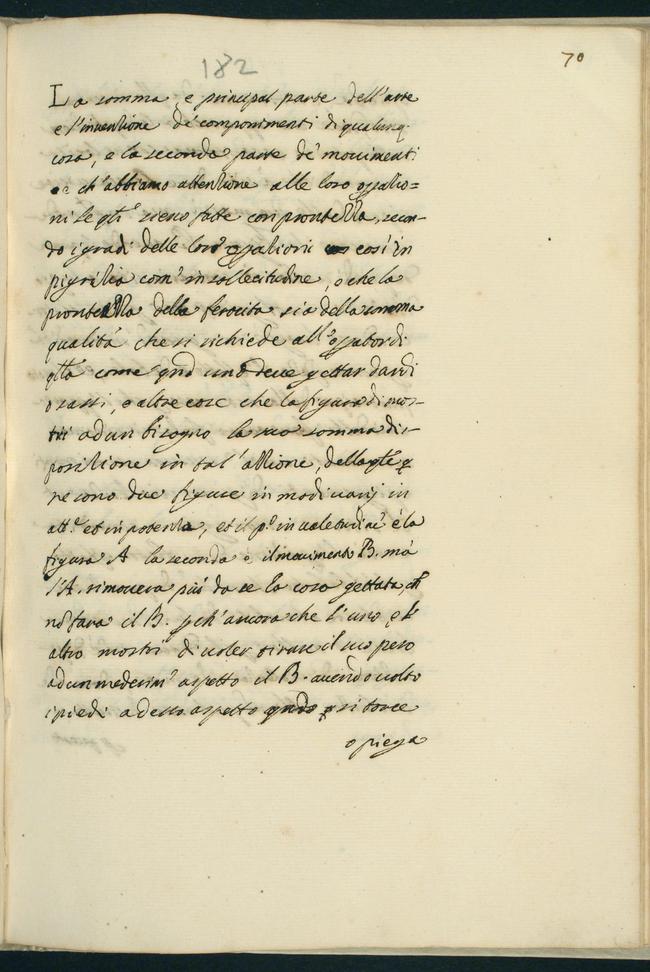 70
182
La somma, e principal parte dell'arte
e l'inventione de' componimenti di qualunq.
cosa, e la seconda parte de' movimenti
e ch'abbiamo attentione alle loro operatio=
ni le qli sieno fatte con prontezza, secon-
do i gradi delle loro operationi così in
pigritia com' in sollecitudine, e che la
prontezza della ferocita sia della somma
qualità che si richiede all'
qlla come qnd uno deve gettar dardi
o sassi, o altre cose che la figura dimos-
tri ad un bisogno la sua somma dis-
positione in tal' attione, della qle
ne sono due figure in modi varij in
att.e et in potenza, et il p.o in valetudine è la
figura A la seconda è il movimento B. mà
l'A. rimoverà più da se la cosa gettata, ch
nō farà il B. pch' ancora che l'uno e l'
altro mostri di voler tirare il suo peso
ad un medesim' aspetto il B. avendo volto
i piedi a desso aspetto qndo si torce
o piega